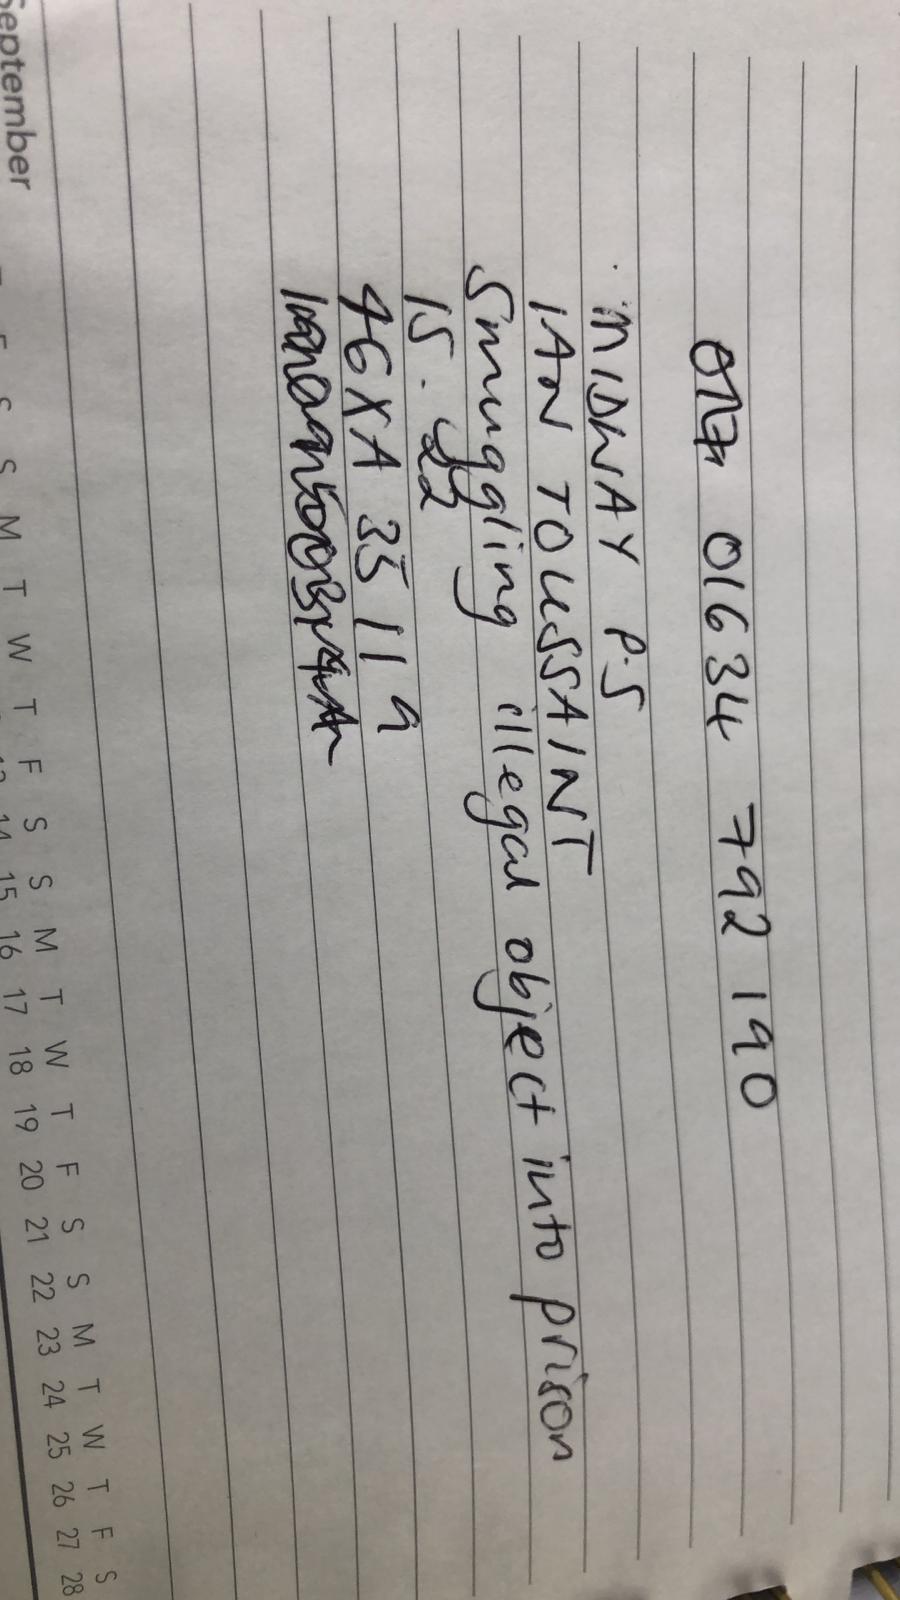 01634 792 190
MIDWAY P.S
IAN TOUSSAINT
Smuggling illegal object into prison
15. 22
46XA 35 11 9
September
F S S M T W T F S S M T W T F S S M T W T F S
14 15 16 17 18 19 20 21 22 23 24 25 26 27 28